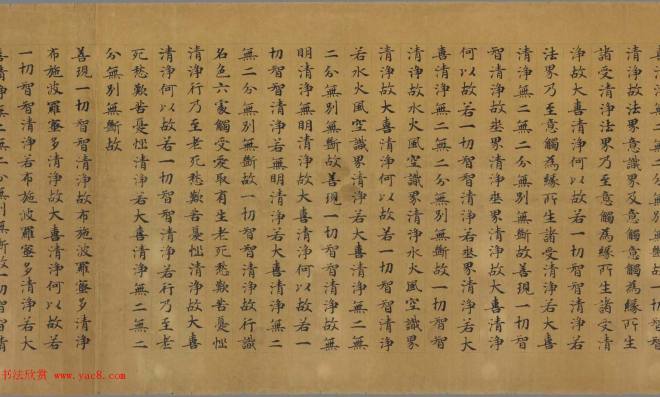 清淨故法界意識界及意觸意觸為緣所生
諸受清淨法界乃至意觸為緣所生諸受清
淨故大喜清淨何以故若一切智智清淨若
法界乃至意觸為緣所生諸受清淨若大喜
清淨無二無二分無別無斷故善現一切智
智清淨故埊界清淨埊界清淨故大喜清淨
何以故若一切智智清淨若埊界清淨若大
喜清淨無二無二分無別無斷故一切智智
清淨故水火風空識界清淨水火風空識界
清淨故大喜清淨何以故若一切智智清淨
若水火風空識界清淨若大喜清淨無二無
二分無別無斷故善現一切智智清淨故無
明清淨無明清淨故大喜清淨何以故若一
切智智清淨若無明清淨若大喜清淨無二
無二分無別無斷故一切智智清淨故行識
名色六處觸受愛取有生老死愁歎苦憂惱
清淨行乃至老死愁歎苦憂惱清淨故大喜
清淨何以故若一切智智清淨若行乃至老
死愁歎苦憂惱清淨若大喜清淨無二無二
分無別無斷故
善現一切智智清淨故布施波羅蜜多清淨
布施波羅蜜多清淨故大喜清淨何以故若
一切智智清淨若布施波羅蜜多清淨若大
喜清淨無二無二分無別無斷故一切智智
书法欣赏
www.yac8.com